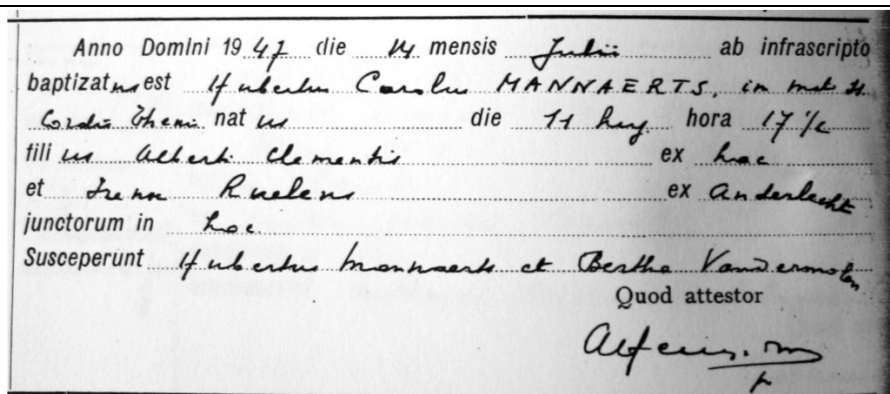 Anno Domini 1947 die 14 mensis Julii ab infrascripto
baptizatus est Hubertus Carolus MANNAERTS, in
Cordis natus die 11 huj. hora 17 1/2
filius Alberti Clementis ex hac
et Irena Ruelens ex Anderlecht
junctorum in hac
Susceperunt Hubertus Mannaerts et Bertha Vandermolen
Quod attestor